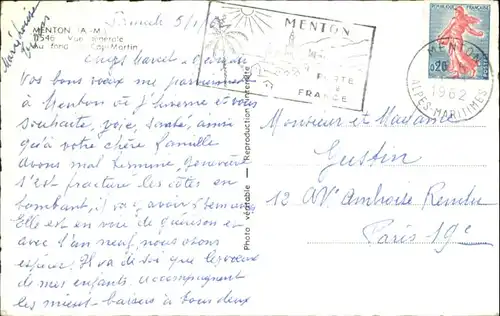 MENTON (A.-M.)
11546 Vue générale
Au fond Cap Martin
5/1/62
MENTON
PERLE
FRANCE
RÉPUBLIQUE FRANÇAISE
0,20
MENTON
1962
ALPES-MARITIMES
Photo véritable — (Reproduction interdite)
Vos bons vœux me parviennent
à Menton où j'hiverne et vous
souhaite, joie, santé, ainsi
qu'à votre chère famille
avons mal terminé, Geneviève
s'est fracturé les côtes en
tombant, il y a
Elle est en voie de guérison et
avec l'an neuf, nous osons
espérer. Il va de soi que les vœux
de mes enfants accompagnent
les miens - baisers à tous deux
Monsieur et Madame
Gustin
12 AV. Ambroise Rendu
Paris-19e